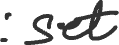 : set